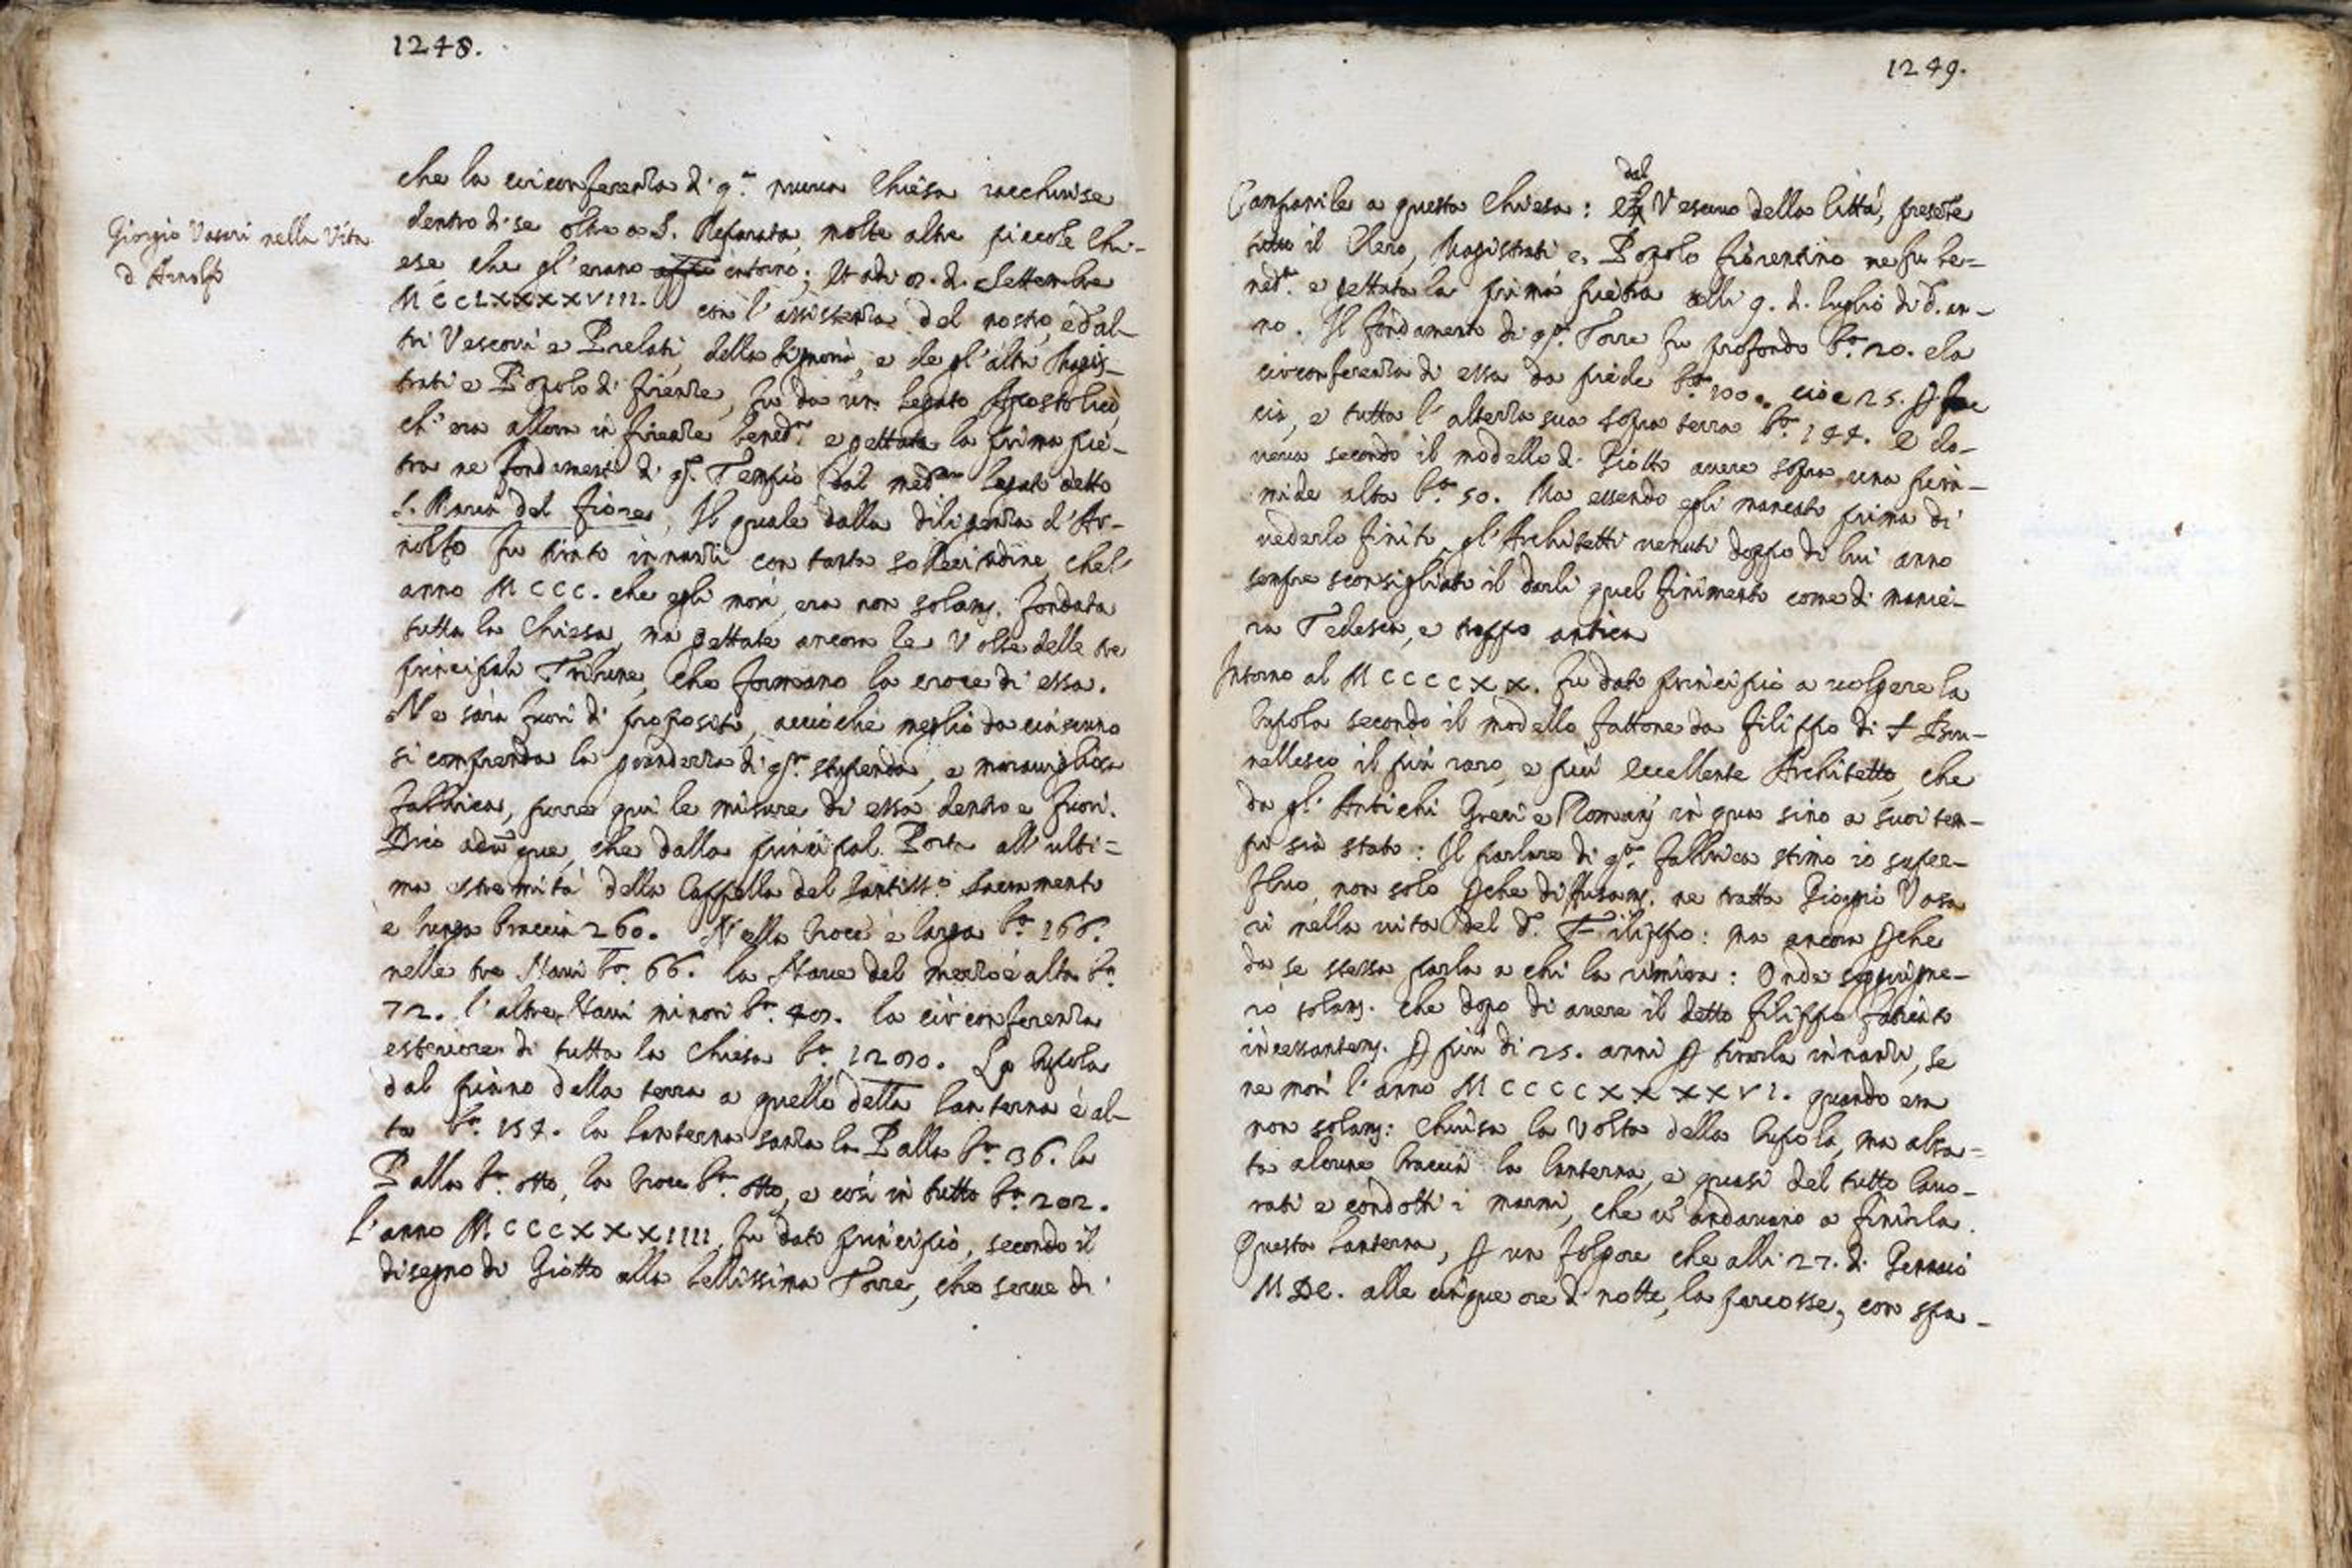 1248.
che la circonferenza di q.ª nuova Chiesa racchiuse
dentro di se oltre a S. Reparata, molte altre piccole Chi-
Giorgio Vasari nella Vita
d'Arnolfo
ese che gl'erano intorno; et adi 8. di Settembre
MCCLXXXXVIII. con l'assistenza del nostro, ed al-
tri Vescovi e Prelati, della Signoria, e de gl'altri Magis-
trati e Popolo di Firenze, fu da un Legato Apostolico,
ch'era allora in Firenze bened.ª e gettata la prima pie-
tra ne fondamenti di q.º Tempio dal med.mo Legato detto
S. Maria del Fiore, Il quale dalla diligenza d'Ar-
nolfo fu tirato innanzi con tanta sollecitudine, chel'
anno MCCC. che egli morì, era non solam. fondata
tutta la Chiesa, ma gettate ancora le Volte delle tre
principali Tribune, che formano la croce di essa.
Ne sarà fuori di proposito, acciochè meglio da ciascuno
si comprenda la grandezza di q.ª stupenda, e maravigliosa
fabbrica, porre qui le misure di essa dentro e fuori.
Dico adũque, che dalla principal Porta all'ulti=
ma estremità della Cappella del Santiss.º Sacramento
è lunga braccia 260. Nella Croce è larga b.ª 166.
nelle tre Navi b.ª 66. la Nave del mezzo è alta b.ª
72. l'altre Navi minori b.ª 48. la circonferenza
esteriore di tutta la Chiesa b.ª 1280. La Cupola
dal piano della terra a quello della lanterna è al-
ta b.ª 154. la Lanterna sanza la Palla b.ª 36. la
Palla b.ª otto, la Croce b.ª otto, e così in tutto b.ª 202.
l'anno MCCCXXXIIII. fu dato principio, secondo il
disegno di Giotto alla bellissima Torre, che serve di
1249.
dal
Campanile a questa Chiesa: Vescovo della Città, presẽte
tutto il Clero, Magistrati e Popolo fiorentino ne fu be=
ned.ª e gettata la prima pietra alli 9. di luglio di d.º an-
no. Il fondamento di q.ª Torre fu profondo b.ª 20. e la
circonferenza di essa da piede b.ª 100. cioè 25. ꝑ fac
cia, e tutta l'altezza sua sopra terra b.ª 144. e do-
veva secondo il modello di Giotto avere sopra una pira-
mide alta b.ª 50. Ma essendo egli mancato prima di
vederlo finito, gl'Architetti venuti doppo di lui anno
sempre sconsigliato il darli quel finimento come di manie-
ra Tedesca, e troppo antica
Intorno al MCCCCXX. fu dato principio a volgere la
Cupola secondo il modello fattone da Filippo di Bru-
nellesco il più raro, e più eccellente Architetto, che
da gl'Antichi Greci e Romanj in qua sino a suoi tem-
pi sia stato: Il parlare di q.ª fabbrica stimo io super-
fluo, non solo ꝑche diffusam. ne tratta Giorgio Vasa
ri nella vita del d.º Filippo: ma ancora ꝑche
da se stessa parla a chi la rimira: Onde
rò solam. che dopo di avere il detto Filippo faticato
incessantem. ꝑ più di 25. anni ꝑ tirarla innanzi, se
ne morì l'anno MCCCCXXXXVI. quando era
non solam: chiusa la Volta della Cupola, ma alza=
ta alcune braccia la lanterna, e quasi del tutto lavo-
rati e condotti i marmi, che v'andavano a finirla.
Questa Lanterna, ꝑ un folgore che alli 27. di Gennaio
MDC. alle cinque ore di notte, la percosse, con spa-